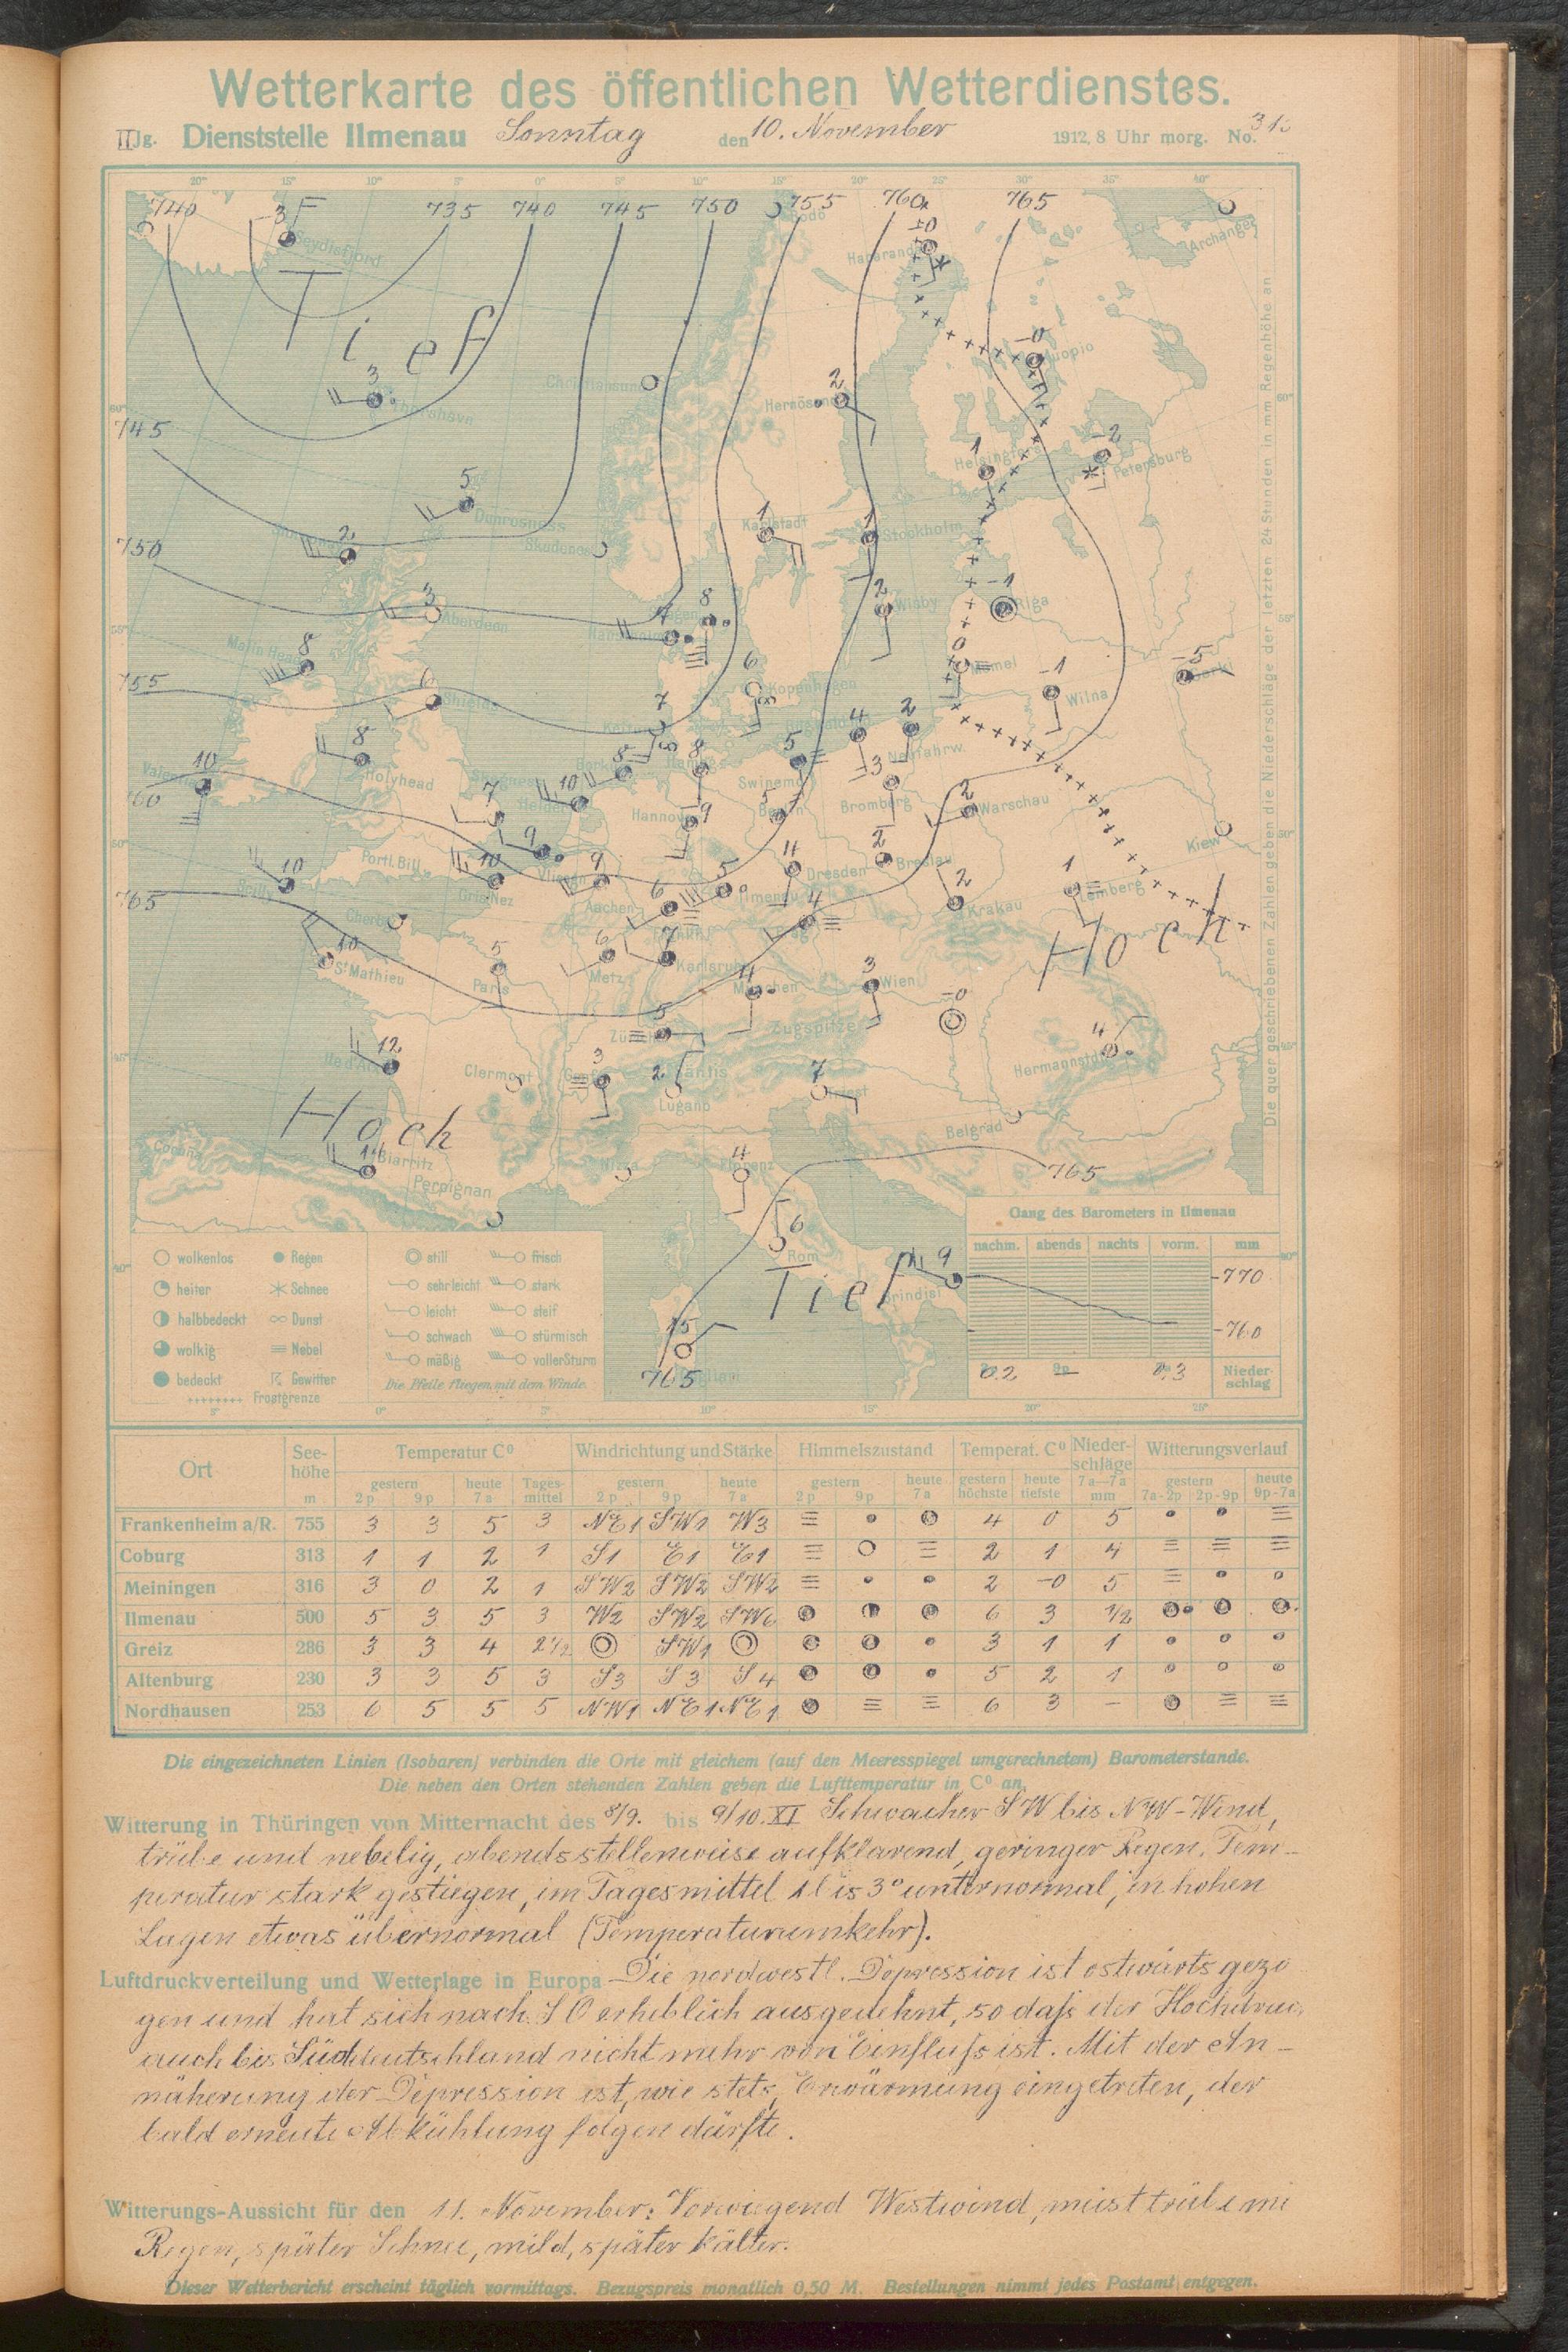 Wetterkarte des öffentlichen Wetterdienstes.
II Jg. Dienststelle Ilmenau Sonntag den 10. November 1912, 8 Uhr morg. No.
20° 15° 10° 5° 0° 5° 10° 15° 20° 25° 30° 35° 40°
740 735 740 745 750 755 760 765
Seydisfjord
Bodö
Haparanda
Archangel
Tief
Thorshavn
Christiansund
Hernösand
Kuopio
745
Helsingfors
Petersburg
Dunrosness
Skudenes
Karlstadt
Stockholm
750
Aberdeen
Wisby
Riga
Malin Head
Memel
755
Shields
Kopenhagen
Wilna
Gorki
Holyhead
Borkum
Hamburg
Swinemd.
Neufahrw.
Valencia
60
Helder
Hannover
Berlin
Bromberg
Warschau
Kiew
Portl. Bill
Vlissingen
Dresden
Breslau
Scilly
765
Gris Nez
Aachen
Ilmenau
Krakau
Lemberg
Cherbourg
Hoch
St Mathieu
Paris
Metz
Karlsruhe
Prag
München
Wien
Zürich
Zugspitze
Ile d'Aix
Clermont
Genf
Säntis
Lugano
Triest
Hermannstadt
Hoch
Belgrad
Coruña
Biarritz
Perpignan
Nizza
Florenz
765
Rom
Tief
Brindisi
765
Cagliari
Die quer geschriebenen Zahlen geben die Niederschläge der letzten 24 Stunden in mm Regenhöhe an
wolkenlos Regen still frisch
heiter Schnee sehr leicht stark
halbbedeckt Dunst leicht steif
wolkig Nebel schwach stürmisch
bedeckt Gewitter mäßig voller Sturm
Frostgrenze Die Pfeile fliegen mit dem Winde.
Gang des Barometers in Ilmenau
nachm. abends nachts vorm. mm
770
760
0.2 9p — 0.3 Nieder-schlag
Ort See-höhe Temperatur C° Windrichtung und Stärke Himmelszustand Temperat. C° Nieder-schläge Witterungsverlauf
gestern heute Tages-mittel gestern heute gestern heute gestern höchste heute tiefste 7a—7a gestern heute
m 2p 9p 7a 2p 9p 7a 2p 9p 7a mm 7a-2p 2p-9p 9p-7a
Frankenheim a/R. 755 3 3 5 3 NE1 SW1 W3 4 0 5
Coburg 313 1 1 2 1 S1 E1 E1 2 1 4
Meiningen 316 3 0 2 1 SW2 SW2 SW2 2 -0 5
Ilmenau 500 5 3 5 3 W2 SW2 SW6 6 3 1/2
Greiz 286 3 3 4 2½ SW1 3 1 1
Altenburg 230 3 3 5 3 S3 S3 S4 5 2 1
Nordhausen 253 6 5 5 5 NW1 NE1 NE1 6 3 –
Die eingezeichneten Linien (Isobaren) verbinden die Orte mit gleichem (auf den Meeresspiegel umgerechnetem) Barometerstande.
Die neben den Orten stehenden Zahlen geben die Lufttemperatur in C° an.
Witterung in Thüringen von Mitternacht des 8/9. bis 9/10. XI Schwacher SW bis NW-Wind,
trübe und nebelig, abends stellenweise aufklarend, geringer Regen. Tem-
peratur stark gestiegen, im Tagesmittel 1 bis 3° unternormal, in hohen
Lagen etwas übernormal (Temperaturumkehr).
Luftdruckverteilung und Wetterlage in Europa Die nordwestl. Depression ist ostwärts gezo
gen und hat sich nach SO erheblich ausgedehnt, so daſs der Hochdruc
auch bis Süddeutschland nicht mehr von Einfluſs ist. Mit der An-
näherung der Depression ist, wie stets, Erwärmung eingetreten, der
bald erneute Abkühlung folgen dürfte.
Witterungs-Aussicht für den 11. November: Vorwiegend Westwind, meist trübe mi
Regen, später Schnee, mild, später kälter.
Dieser Wetterbericht erscheint täglich vormittags. Bezugspreis monatlich 0,50 M. Bestellungen nimmt jedes Postamt entgegen.